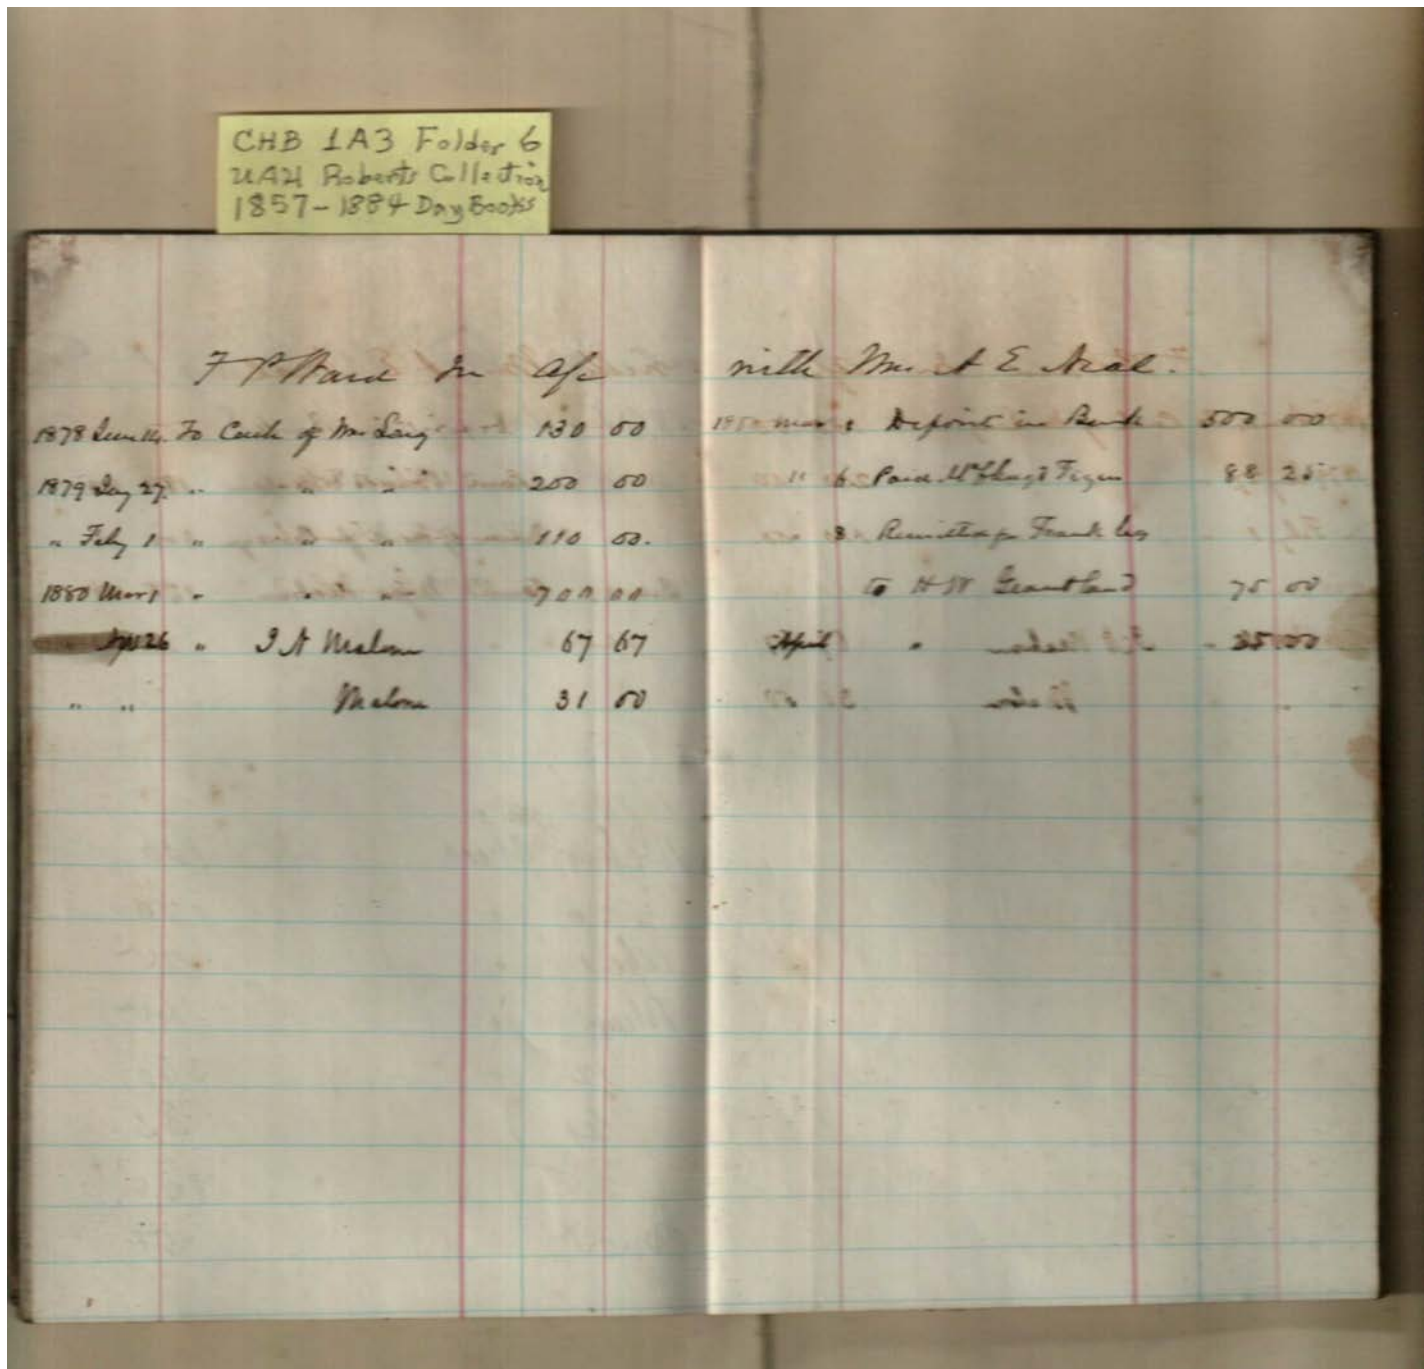 CHB 1A3 Folder 6
UAH Roberts Collection
1857-1884 Day Books
F P Ward In A/c
1878 14. To Cash of 130 00
1879 27. " " " 200 00
" Feby 1 " " " 110 00.
1880 Mar 1 " " " 700 00
Apr 26 " J N Malone 67 67
" " Malone 31 00
with Mrs A E Neal.
Mar Deposit in Bank 500 00
" 6 Paid 88 25
8 Frank
to H W Grantland 75 00
April " 25 00